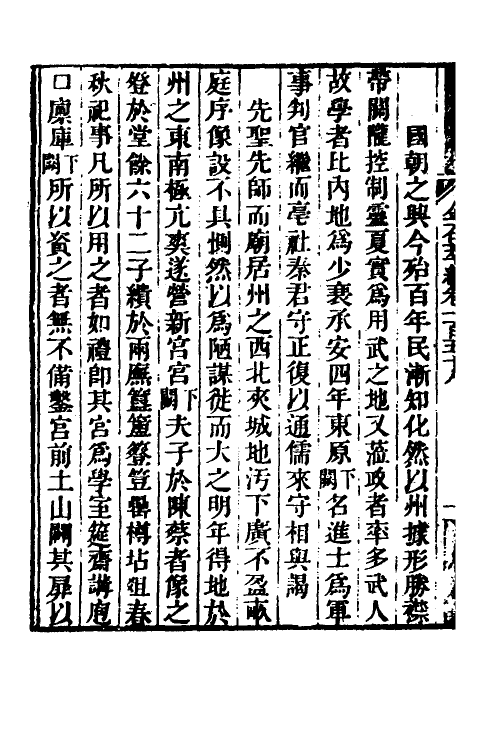 金石萃編卷一百五十八
國朝之興今殆百年民漸知化然以州據形勝襟
帶關隴控制靈夏實爲用武之地又蒞政者率多武人
故學者比内地爲少襄承安四年東原下闕名進士爲軍
事判官繼而亳社秦君守正復以通儒來守相與謁
先聖先師而廟居州之西北夾城地汚下廣不盈畝
庭序像設不具惻然以爲陋謀徙而大之明年得地於
州之東南極亢爽遂營新宮宮下闕夫子於陳蔡者像之
登於堂餘六十二子繢於兩廡簠簋簦豋罍樽坫爼春
秋祀事凡所以用之者如禮卽其宮爲學至筵齋講庖
口廩庫下闕所以資之者無不備鑿宮前土山闢其扉以